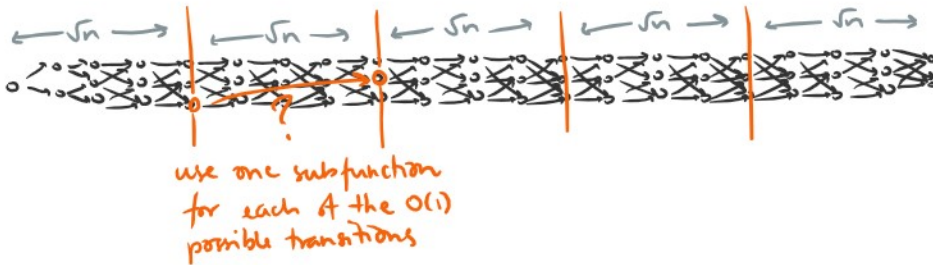 √n √n √n √n √n
?
use one subfunction
for each of the O(1)
possible transitions